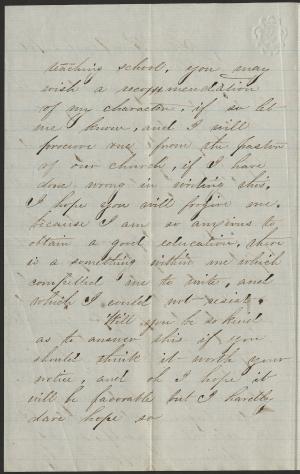 teaching school, you may
wish a recommendation
of my character, if so let
me know, and I will
procure one from the pastor
of our church, if I have
done wrong in writing this.
I hope you will forgive me.
because I am so anxious to
obtain a good education, there
is a something within me which
compelled me to write, and
which I could not resist.
Will you be so kind
as to answer this if you
should think it worth your
notice, and oh I hope it
will be favorable but I hardly
dare hope so